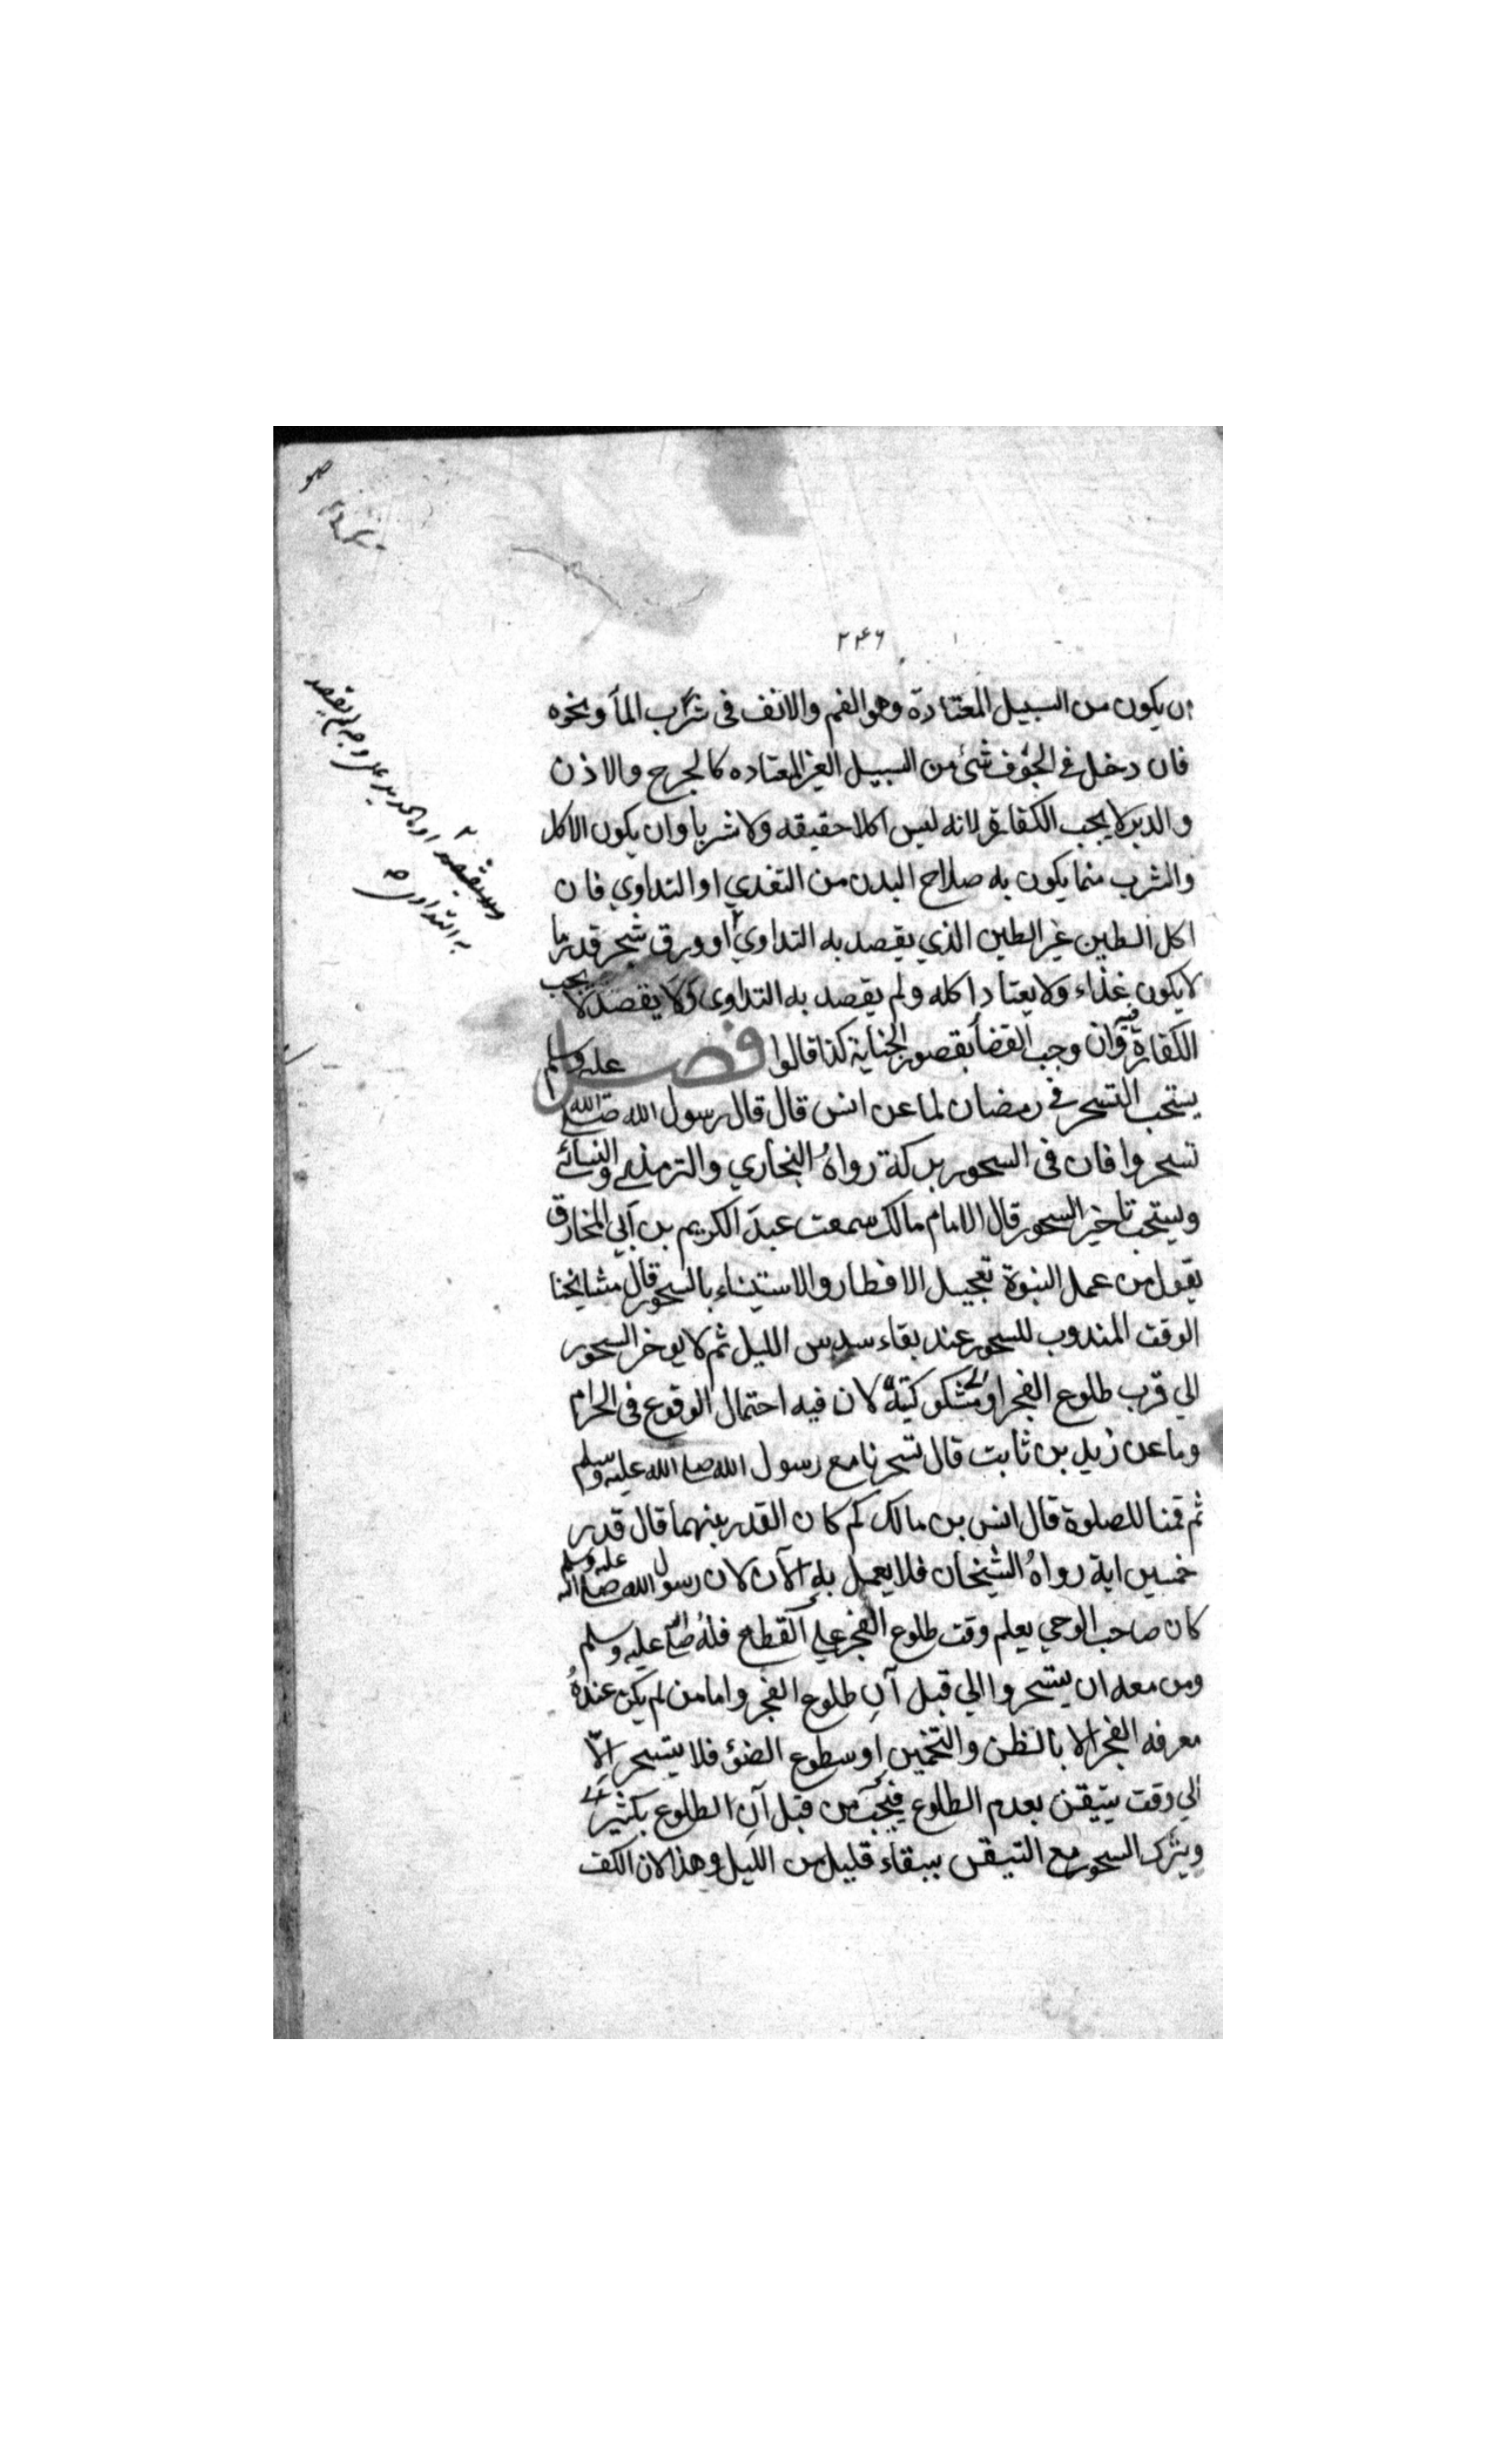 ۲۴۶
ان يكون من السبيل المعتادة وهو الفم والانف فى شرب المأ ونحوه
فان دخل في الجوف شئ من السبيل الغير المعتاده كالجرح والاذن
والدبر لا يجب الكفارة لانه ليس اكلا حقيقه ولا شربا وان يكون الاكل
والشرب مما يكون به صلاح البدن من التغدي او التداوي فان
اكل الطين غير الطين الذي يقصد به التداوي او ورق شجر قدر ما
لا يكون غذاء ولا يعتاد اكله ولم يقصد به التداوى ولا يقصد لا يجب
الكفارة فيه وان وجب القضأ بقصور الجناية كذا قالوا فصل
يستحب التسحر في رمضان لما عن انس قال قال رسول الله صلى الله عليه وسلم
تسحروا فان فى السحور بركة رواه البخاري والترمذي والنسائي
ويستحب تاخير السحور قال الامام مالك سمعت عبد الكريم بن ابي المخارق
يقول من عمل النبوة تعجيل الافطار والاستيناء بالسحور قال مشايخنا
الوقت المندوب للسحور عند بقاء سدس الليل ثم لا يوخر السحور
الي قرب طلوع الفجر او لمشكوكيته لان فيه احتمال الوقوع فى الحرام
وما عن زيد بن ثابت قال تسحرنا مع رسول الله صلى الله عليه وسلم
ثم قمنا للصلوة قال انس بن مالك كم كان القدر بينهما قال قدر
خمسين اية رواه الشيخان فلا يعمل به الآن لان رسول الله صلى الله عليه وسلم
كان صاحب الوحي يعلم وقت طلوع الفجر علي القطع فله صلى الله عليه وسلم
ومن معه ان يتسحروا الي قبل آن طلوع الفجر واما من لم يكن عنده
معرفه الفجر الا بالظن والتخمين او سطوع الضوء فلا يتسحر الا
الي وقت يتيقن بعدم الطلوع فيجب من قبل آن الطلوع بكثير
ويترك السحور مع التيقن ببقاء قليل من الليل وهذا لان الكف
او الحديد على وجه لم يقصد
به التداوى صح